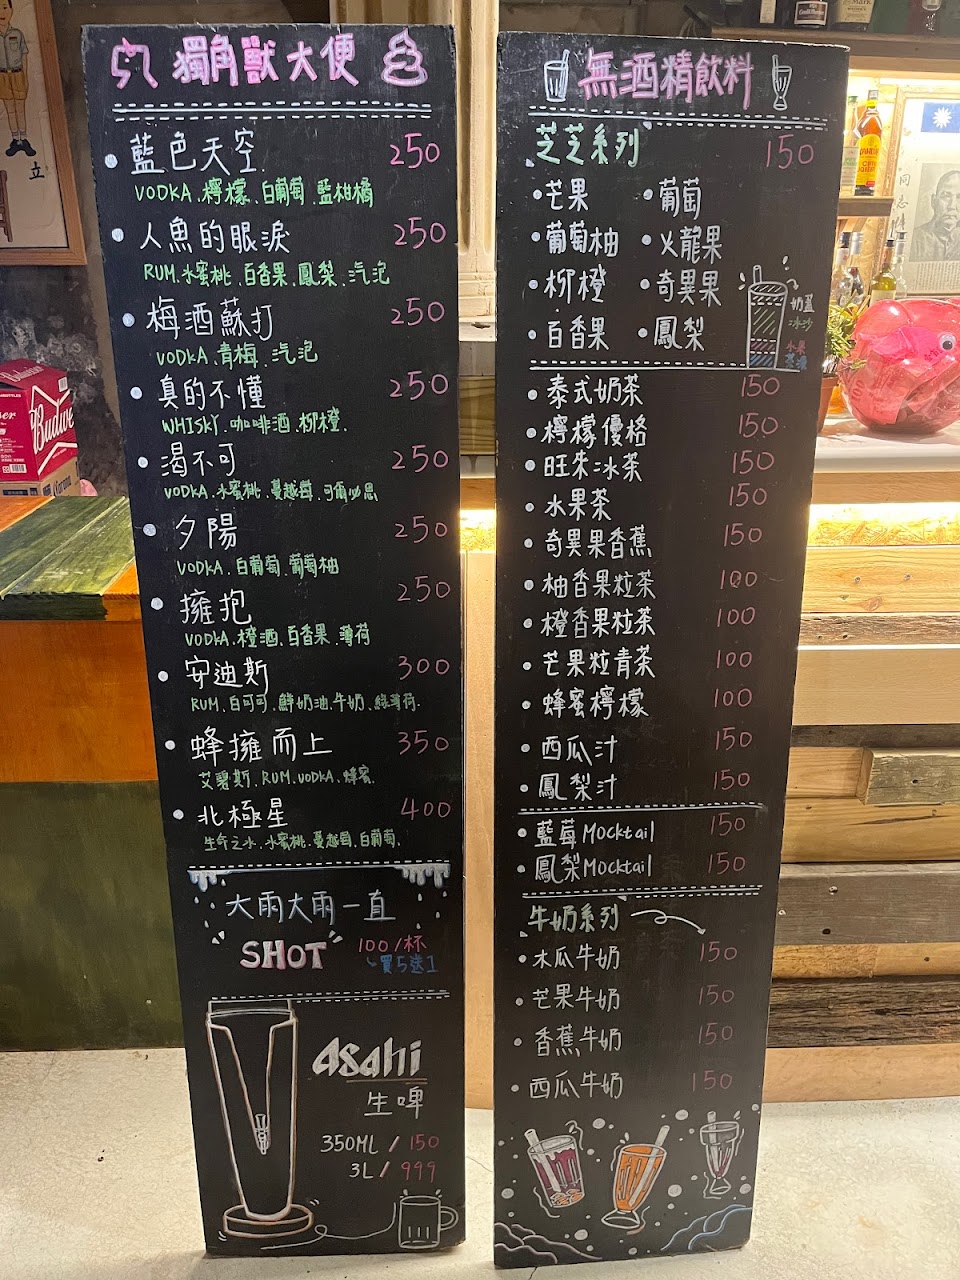 獨角獸大便
藍色天空 250
VODKA.檸檬.白葡萄.藍柑橘
人魚的眼淚 250
RUM.水蜜桃.百香果.鳳梨.汽泡
梅酒蘇打 250
VODKA.青梅.汽泡
真的不懂 250
WHISKY.咖啡酒.柳橙.
渴不可 250
VODKA.水蜜桃.蔓越莓.可爾必思
夕陽 250
VODKA.白葡萄.葡萄柚
擁抱 250
VODKA.橙酒.百香果.薄荷
安迪斯 300
RUM.白可可.鮮奶油.牛奶.綠薄荷.
蜂擁而上 350
艾碧斯.RUM.VODKA.蜂蜜
北極星 400
生命之水.水蜜桃.蔓越莓.白葡萄.
大雨大雨一直
SHOT 100/杯
買5送1
Asahi
生啤
350ML / 150
3L / 999
無酒精飲料
芝芝系列 150
芒果 葡萄
葡萄柚 火龍果
柳橙 奇異果
百香果 鳳梨
奶蓋
冰沙
水果
茶凍
泰式奶茶 150
檸檬優格 150
旺來冰茶 150
水果茶 150
奇異果香蕉 150
柚香果粒茶 100
橙香果粒茶 100
芒果粒青茶 100
蜂蜜檸檬 100
西瓜汁 150
鳳梨汁 150
藍莓Mocktail 150
鳳梨Mocktail 150
牛奶系列
木瓜牛奶 150
芒果牛奶 150
香蕉牛奶 150
西瓜牛奶 150
立
Budweiser
Corona
同志